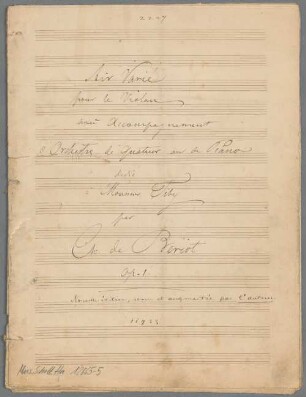 Air Varié
pour le Violon
avec Accompagnement
d'Orchestre de Quatuor ou de Piano
dedié
à Monsieur
par
Ch. de Bériot
Op. 1
Nouvelle édition, revue et augmentée par l'auteur